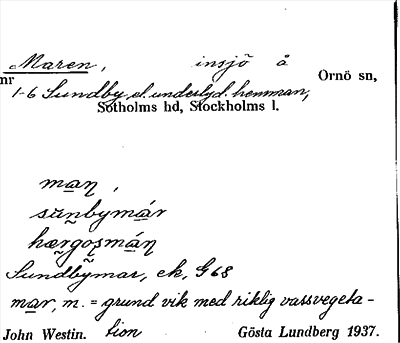 Maren, insjö å
nr Ornö sn,
1-6 Sundby o. underlyd. hemman,
Sotholms hd, Stockholms l.
maṇ,
sūnbymár
hærgoṣmáṇ
Sundbymar, ek, G68
mar, m. = grund vik med riklig vassvegeta-
John Westin. tion Gösta Lundberg 1937.